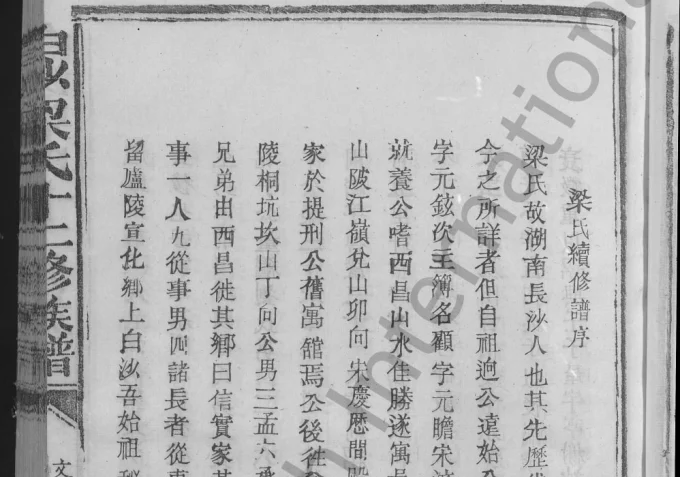 梁氏續修譜序
梁氏故湖南長沙人也其先歷
今之所詳者但自祖逈公遠始
字元鉉次主簿名顧字元瞻宋
就養公嗜西昌山水佳勝遂寓
山陂江嶺兌山卯向宋慶厯間
家於提刑公舊寓舘焉公後徃
陵桐坑坎山丁向公男三孟六
兄弟由西昌徙其鄉曰信實家
事一人九從事男四諸長者從事
留廬陵宣化鄉上白沙吾始祖
梁氏十二修族譜
文
International